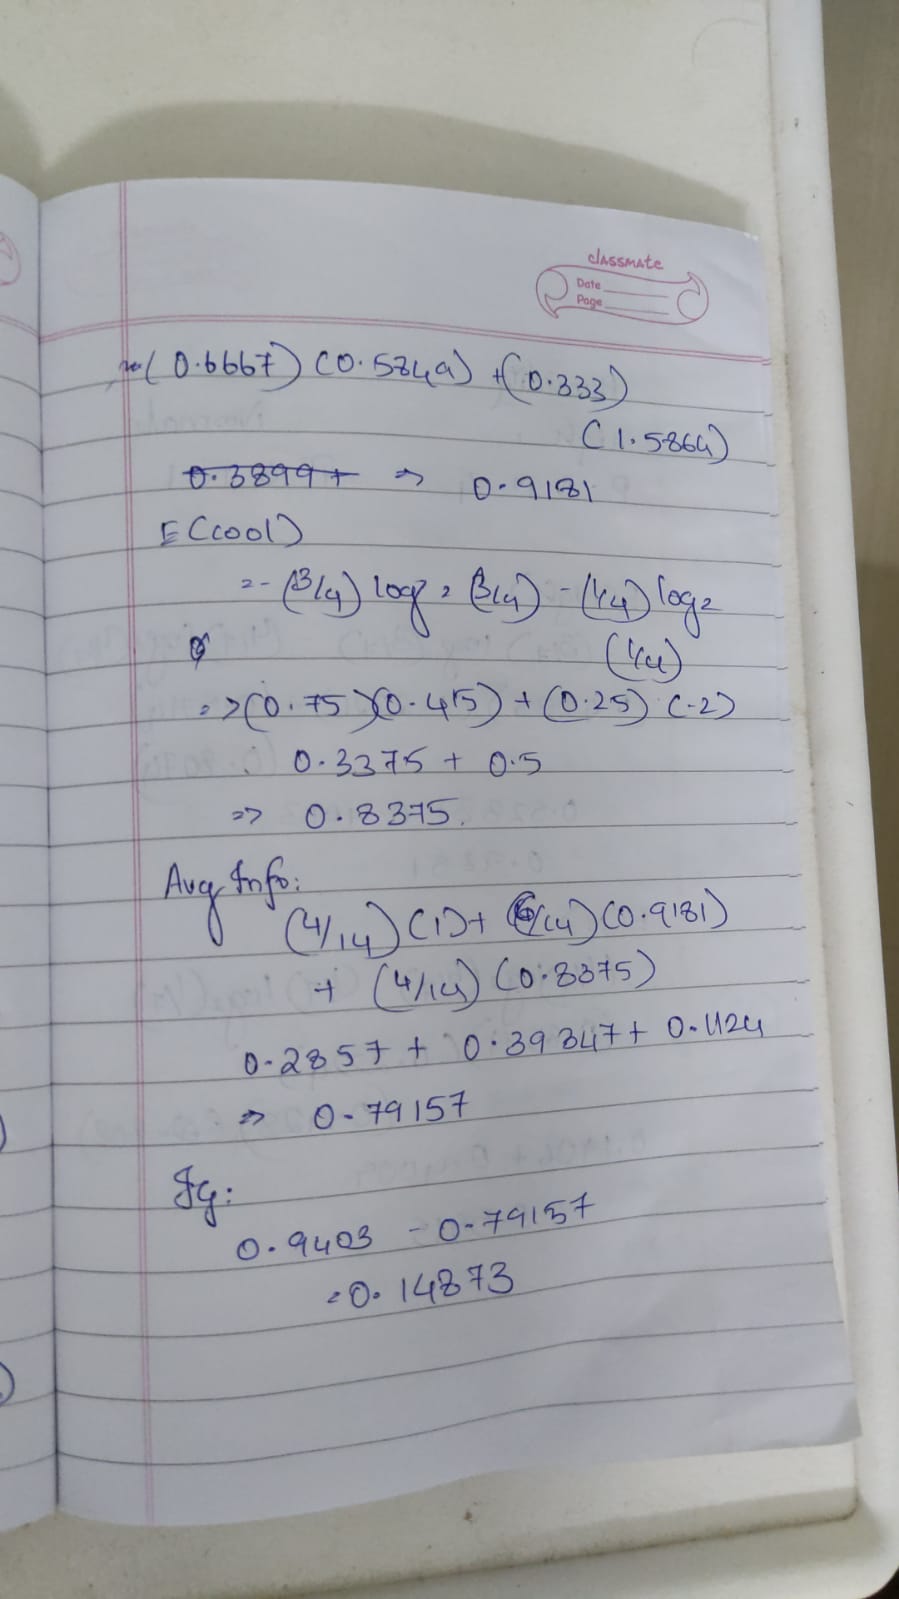 classmate
Date
Page
(0.6667) (0.5849) + (0.333)
(1.5864)
0.3899+ => 0.9181
E(cool)
= - (3/4) log2 (3/4) - (1/4) log2
(1/4)
=> (0.75)(0.415) + (0.25) (-2)
0.3375 + 0.5
=> 0.8375.
Avg Info:
(4/14) (1) + (6/14) (0.9181)
+ (4/14) (0.8375)
0.2857 + 0.39347 + 0.1124
=> 0.79157
Ig:
0.9403 - 0.79157
= 0.14873